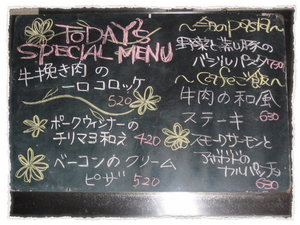 TODAY'S
SPECIAL MENU
牛挽き肉の
一口コロッケ
520
ポークウィンナーの
チリマヨ和え 420
ベーコンのクリーム
ピザ 520
野菜と
バジルパスタ 680
牛肉の和風
ステーキ 630
スモークサーモンと
アボカドの
カルパッチョ
680